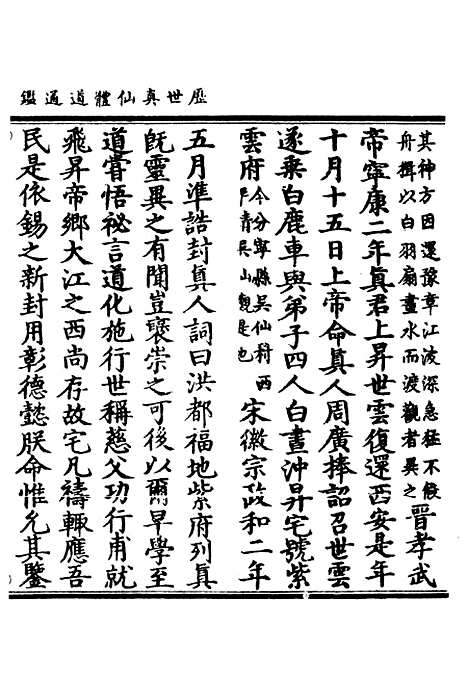 歷世真仙體道通鑑
其神方因還豫章江波深急猛不假
舟楫以白羽扇畫水而渡觀者異之
晉孝武
帝寧康二年真君上昇世雲復還西安是年
十月十五日上帝命真人周廣捧詔召世雲
遂乘白鹿車與弟子四人白晝沖昇宅號紫
雲府
今分寧縣吳仙村西
平青吳山觀是也
宋徽宗政和二年
五月準誥封真人詞曰洪都福地紫府列真
既靈異之有聞豈褒崇之可後以爾早學至
道嘗悟祕言道化施行世稱慈父功行甫就
飛昇帝鄉大江之西尚存故宅凡禱輒應吾
民是依錫之新封用彰德懿朕命惟允其鑒